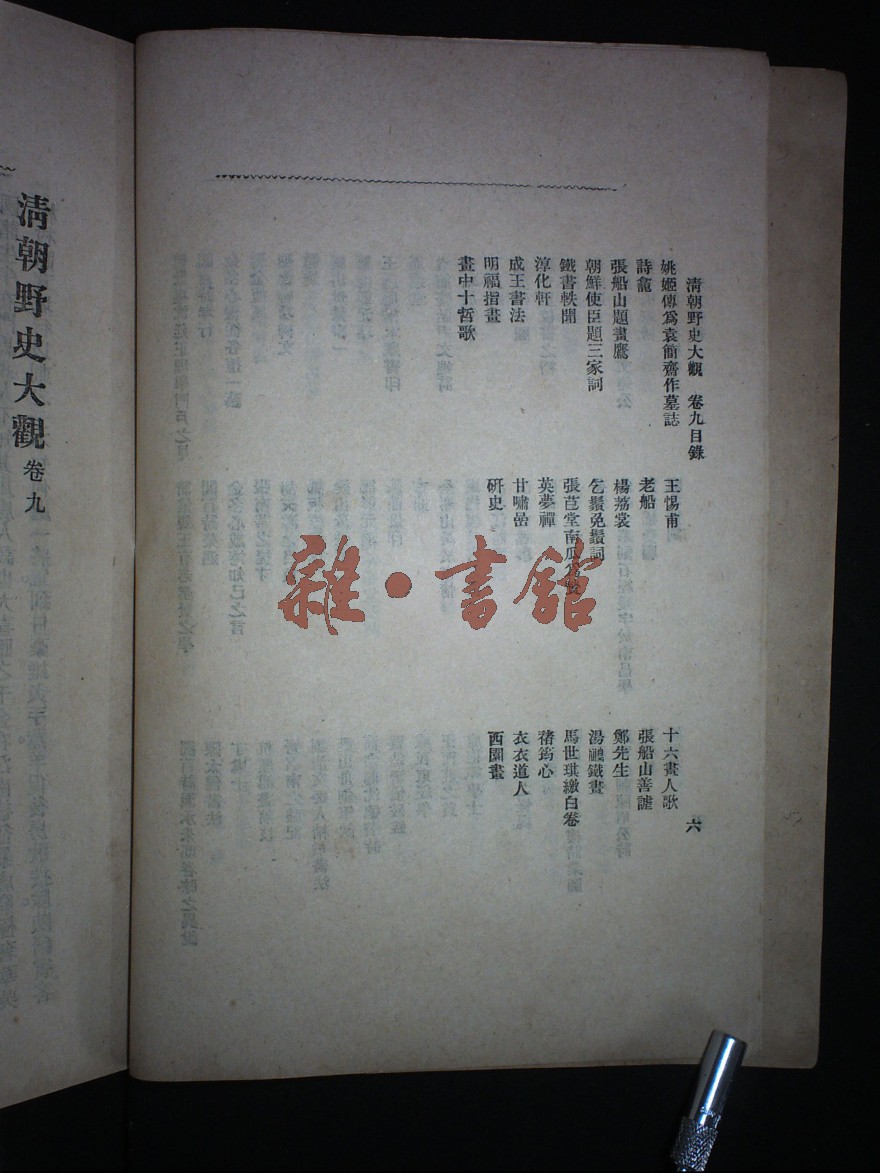 清朝野史大觀 卷九目錄 六
姚姬傳爲袁簡齋作墓誌
王惕甫
十六畫人歌
詩龕
老船
張船山善謔
張船山題畫鷹
楊荔裳
鄭先生
朝鮮使臣題三家詞
乞鬚免鬚詞
湯鵬鐵畫
鐵書軼聞
張芑堂南瓜爲贄
馬世琪繳白卷
淳化軒
英夢禪
褚筠心
成王書法
甘嘯嵒
衣衣道人
明福指畫
研史
西園畫
畫中十哲歌
清朝野史大觀 卷九
雜·書館